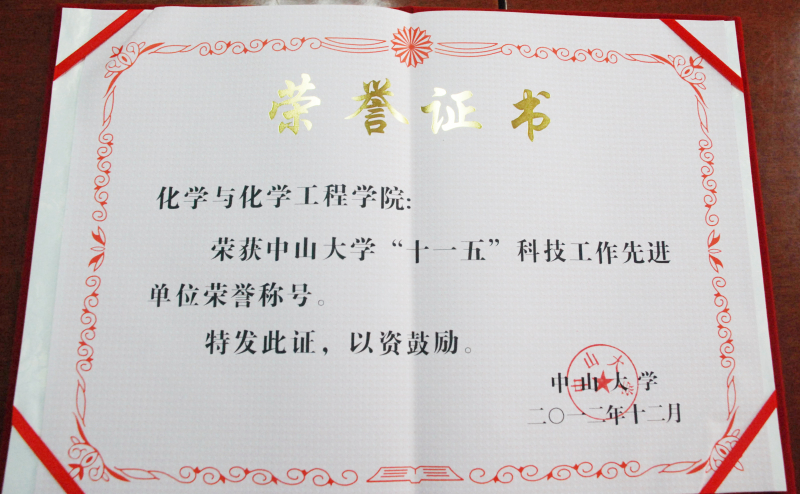 荣誉证书
化学与化学工程学院：
荣获中山大学“十一五”科技工作先进
单位荣誉称号。
特发此证，以资鼓励。
中山大学
中山大学
二〇一二年十二月